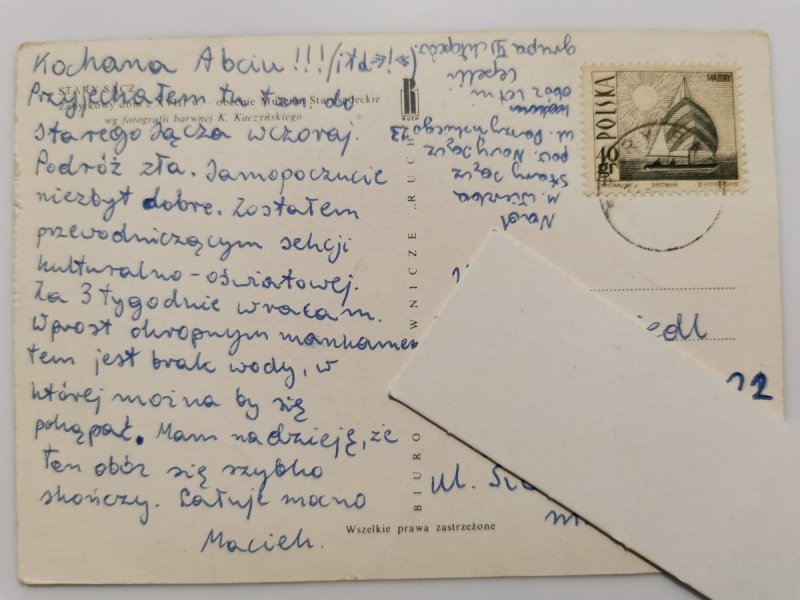 Kochana Abciu !!! /itd!*!*)
STARY SĄCZ
Przyjechałem tu tzn. do
Zabytkowy dom XVII w. — obecnie Muzeum Starosądeckie
Starego Sącza wczoraj.
wg fotografii barwnej K. Kaczyńskiego
Podróż zła. Samopoczucie
niezbyt dobre. Zostałem
przewodniczącym sekcji
kulturalno-oświatowej.
Za 3 tygodnie wracam.
Wprost okropnym mankamen
tem jest brak wody, w
której można by się
pokąpać. Mam nadzieję, że
ten obóz się szybko
skończy. Całuję mocno
Maciek.
RUCH
BIURO WNICZE „RUCH
Wszelkie prawa zastrzeżone
Nad.
M.
Stary Sącz
pow. Nowy Sącz
ul.
obóz letni
grupa VI chłopców
POLSKA
MAZURY
40 gr
iedl
12
ul.